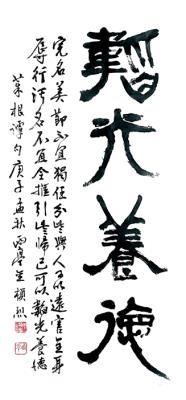 韜光養德
完名美節不宜獨任分些與人可以遠害全身
辱行汚名不宜全推引些歸己可以韜光養德
菜根譚句庚子孟秋